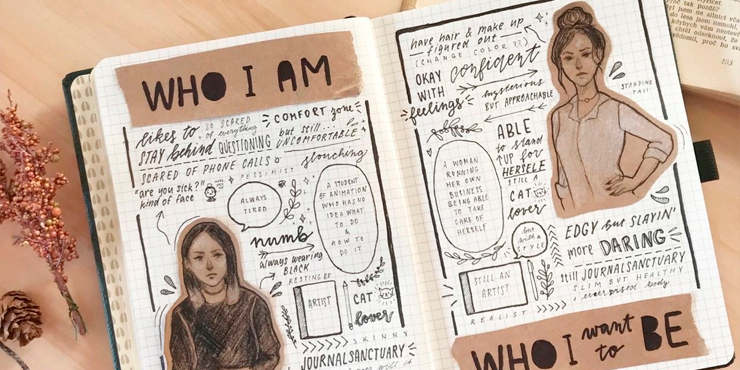 WHO I AM
likes to
STAY behind
SO SCARED
of everything
QUESTIONING
COMFORT zone
but still...
UNCOMFORTABLE
SCARED OF PHONE CALLS
slouching
PESSIMIST
"are you sick?"
kind of face
ALWAYS
TIRED
A STUDENT
OF ANIMATION
WHO HAS NO
IDEA WHAT
TO DO
&
HOW TO
DO IT
numb
always wearing
BLACK
ARTIST
CAT
lover
SKINNY
JOURNALSANCTUARY
have hair & make up
figured out
(CHANGE COLOR ??)
OKAY
WITH
feelings
confident
mysterious
BUT APPROACHABLE
STANDING
TALL
ABLE
to stand
UP for
HERSELF
STILL A
CAT
lover
A WOMAN
RUNNING
HER OWN
BUSINESS
BEING ABLE
TO TAKE
CARE OF
HERSELF
but with a
STYLE
STILL AN
ARTIST
REALIST
EDGY but SLAYIN'
more DARING
still JOURNALSANCTUARY
SLIM BUT HEALTHY
body
WHO I want to BE
103